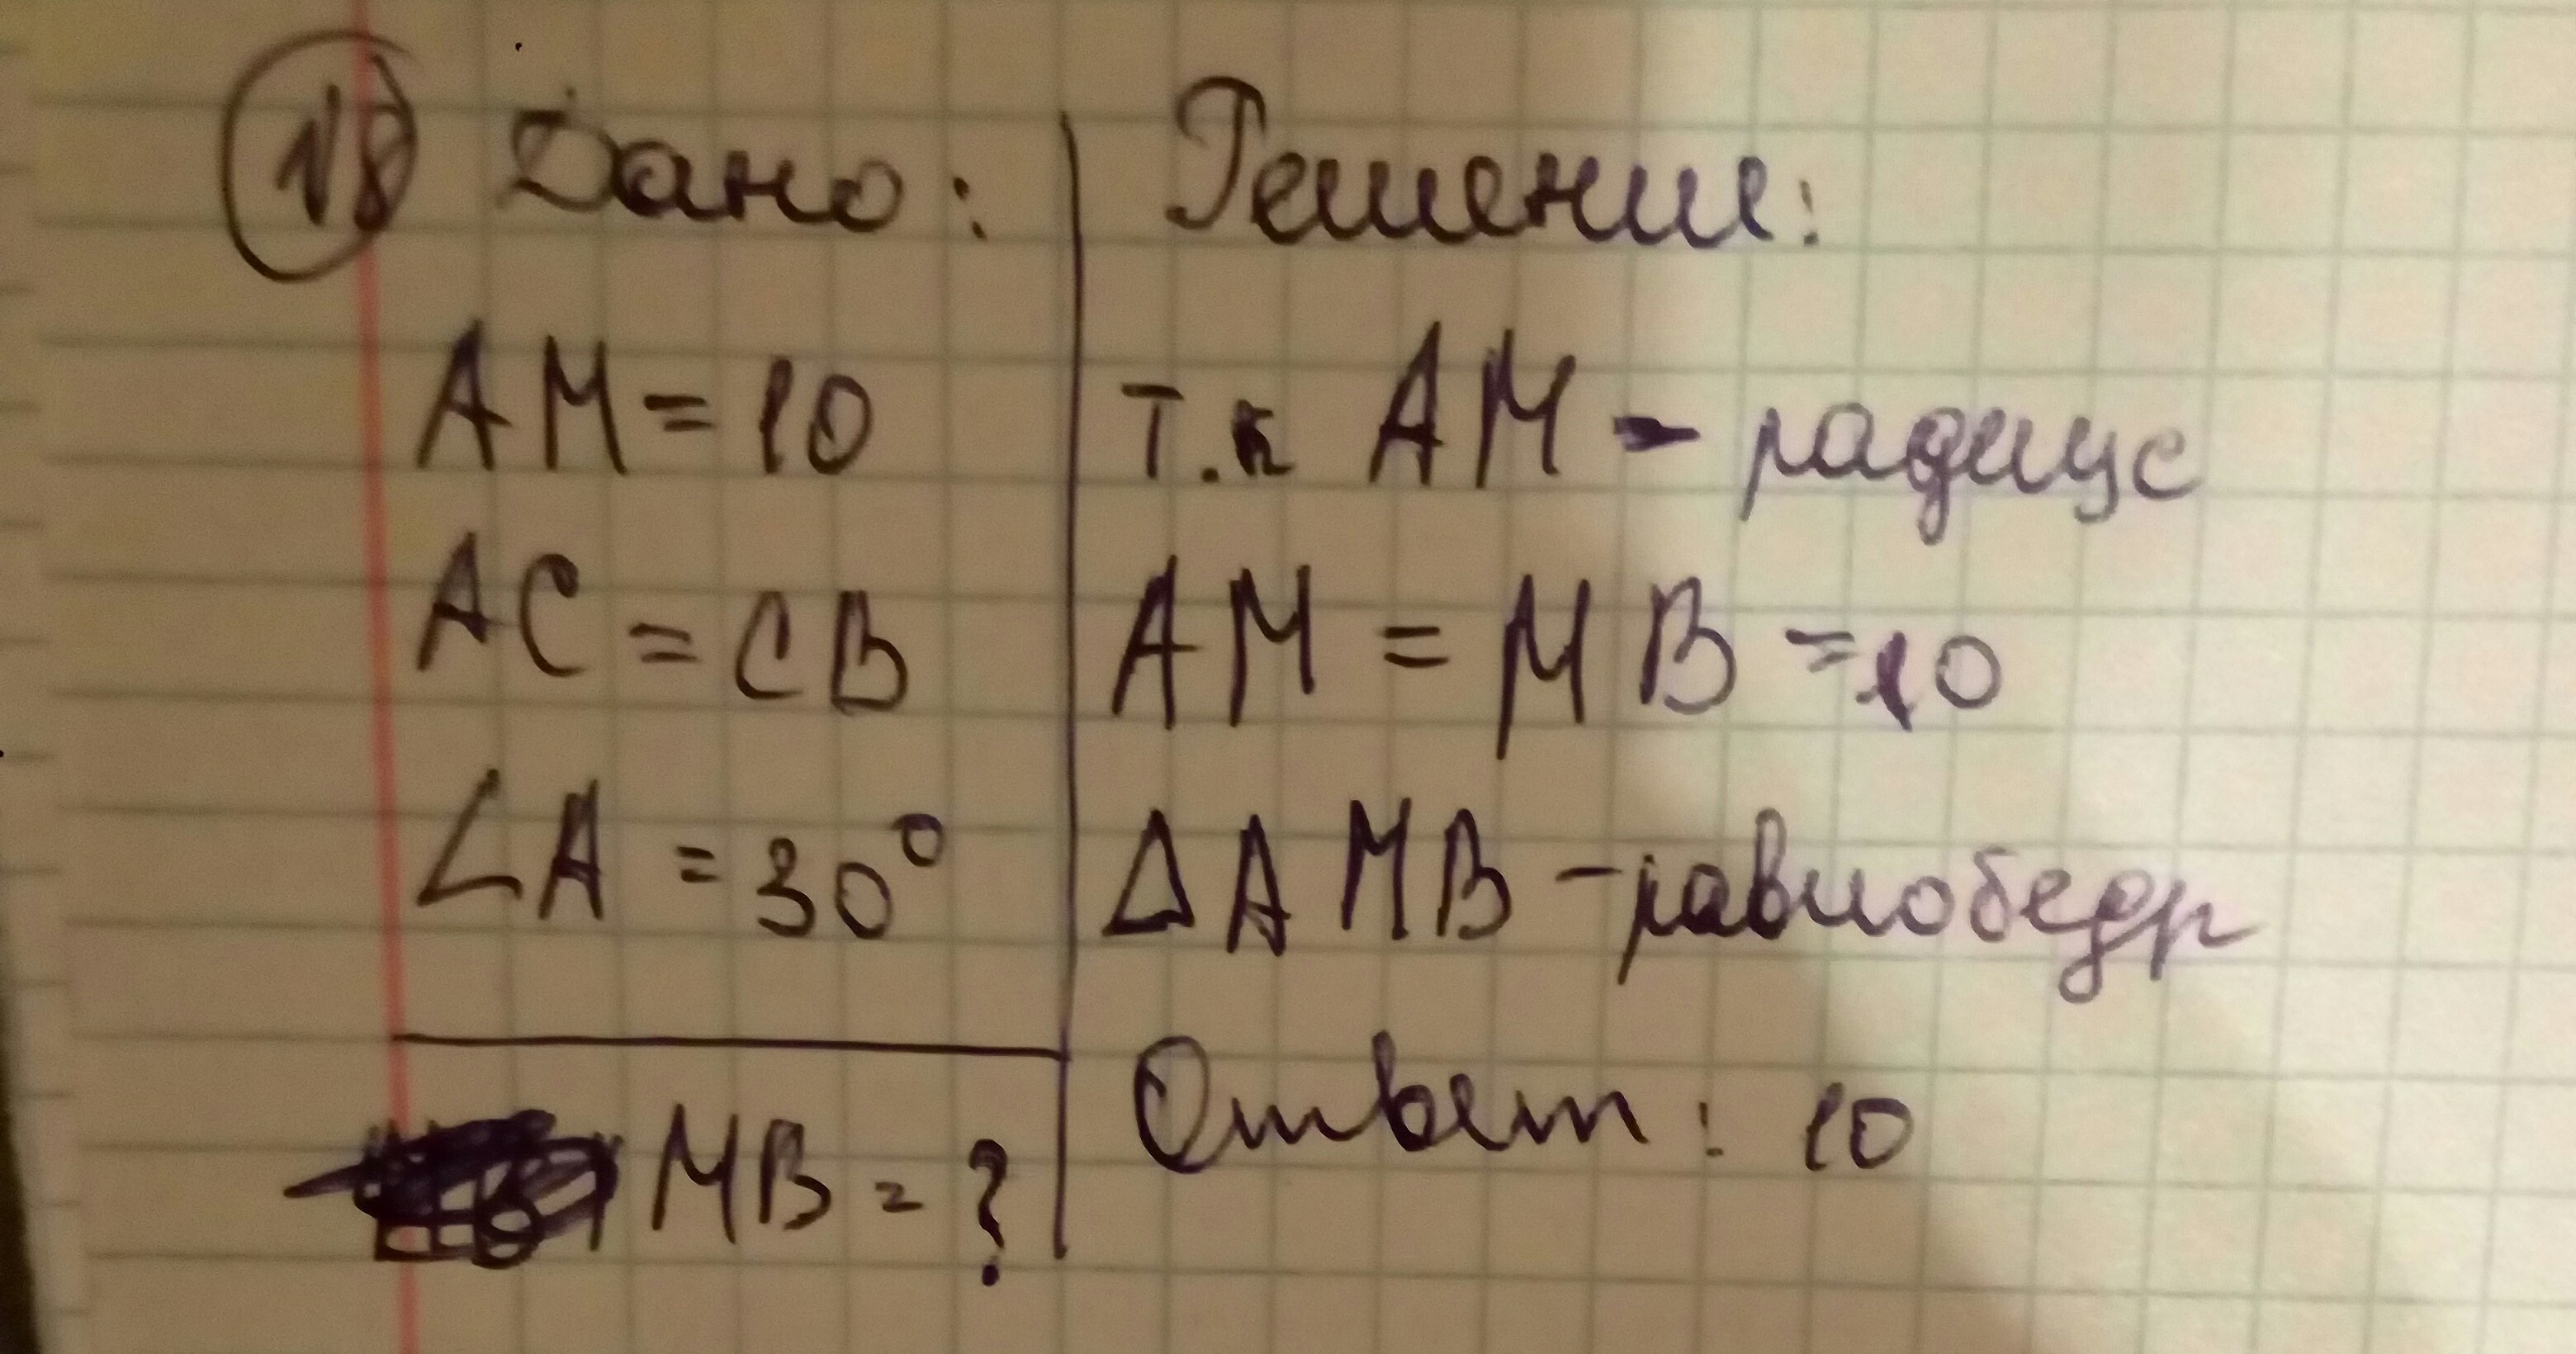 18 Дано:
AM = 10
AC = CB
∠A = 30°
MB = ?
Решение:
т.к AM - радиус
AM = MB = 10
△AMB - равнобедр
Ответ: 10